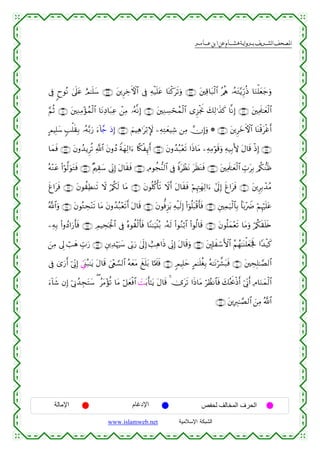 المصحف الشريف برواية هشام عن ابن عامر
وَجَعَلْنَا ذُرِّيَّتَهُۥ هُمُ ٱلْبَاقِينَ وَتَرَكْنَا عَلَيْهِ فِى ٱلْءَاخِرِينَ سَلَٰمٌ عَلَىٰ نُوحٍ فِى
ٱلْعَٰلَمِينَ إِنَّا كَذَٰلِكَ نَجْزِى ٱلْمُحْسِنِينَ إِنَّهُۥ مِنْ عِبَادِنَا ٱلْمُؤْمِنِينَ ثُمَّ
أَغْرَقْنَا ٱلْءَاخَرِينَ ۞ وَإِنَّ مِن شِيعَتِهِۦ لَإِبْرَٰهِيمَ إِذْ جَآءَ رَبَّهُۥ بِقَلْبٍ سَلِيمٍ
إِذْ قَالَ لِأَبِيهِ وَقَوْمِهِۦ مَاذَا تَعْبُدُونَ أَئِفْكًا ءَالِهَةً دُونَ ٱللَّهِ تُرِيدُونَ فَمَا
ظَنُّكُم بِرَبِّ ٱلْعَٰلَمِينَ فَنَظَرَ نَظْرَةً فِى ٱلنُّجُومِ فَقَالَ إِنِّى سَقِيمٌ فَتَوَلَّوْا۟ عَنْهُ
مُدْبِرِينَ فَرَاغَ إِلَىٰ ءَالِهَتِهِمْ فَقَالَ أَلَا تَأْكُلُونَ مَا لَكُمْ لَا تَنطِقُونَ فَرَاغَ
عَلَيْهِمْ ضَرْبًۢا بِٱلْيَمِينِ فَأَقْبَلُوٓا۟ إِلَيْهِ يَزِفُّونَ قَالَ أَتَعْبُدُونَ مَا تَنْحِتُونَ وَٱللَّهُ
خَلَقَكُمْ وَمَا تَعْمَلُونَ قَالُوا۟ ٱبْنُوا۟ لَهُۥ بُنْيَٰنًا فَأَلْقُوهُ فِى ٱلْجَحِيمِ فَأَرَادُوا۟ بِهِۦ
كَيْدًا فَجَعَلْنَٰهُمُ ٱلْأَسْفَلِينَ وَقَالَ إِنِّى ذَاهِبٌ إِلَىٰ رَبِّى سَيَهْدِينِ رَبِّ هَبْ لِى مِنَ
ٱلصَّٰلِحِينَ فَبَشَّرْنَٰهُ بِغُلَٰمٍ حَلِيمٍ فَلَمَّا بَلَغَ مَعَهُ ٱلسَّعْىَ قَالَ يَٰبُنَىِّ إِنِّىٓ أَرَىٰ فِى
ٱلْمَنَامِ أَنِّىٓ أَذْبَحُكَ فَٱنظُرْ مَاذَا تَرَىٰ قَالَ يَٰٓأَبَتَ ٱفْعَلْ مَا تُؤْمَرُ سَتَجِدُنِىٓ إِن شَآءَ
ٱللَّهُ مِنَ ٱلصَّٰبِرِينَ
الحرف المخالف لحفص الإدغام الإمالة
الشبكة الإسلامية www.islamweb.net